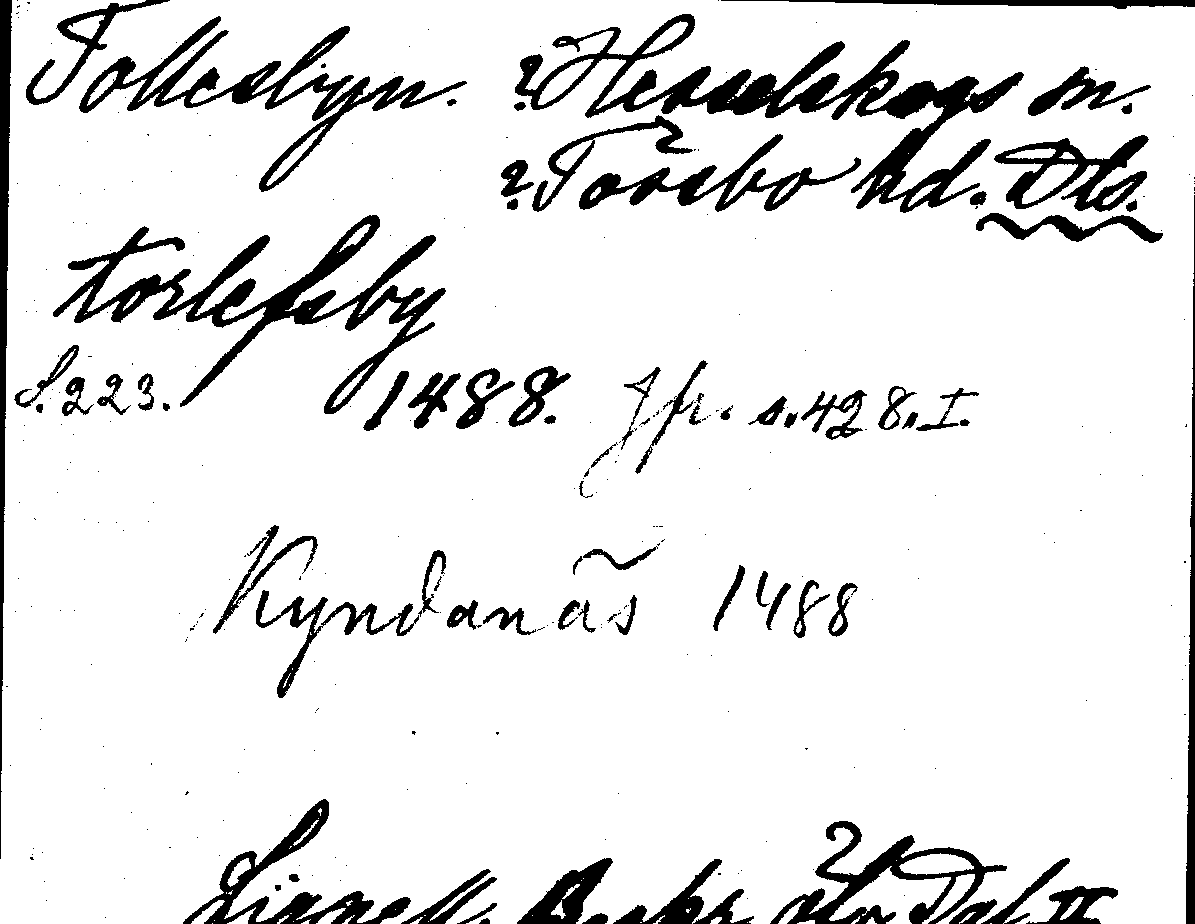 Tollesbyn. ? Hesselskogs sn.
? Tössbo hd. Dls.
torlefsby
S. 223. 1488. Jfr. s. 428. I.
Kyndanäs 1488
Lignell, Beskr. öfv. Dal II